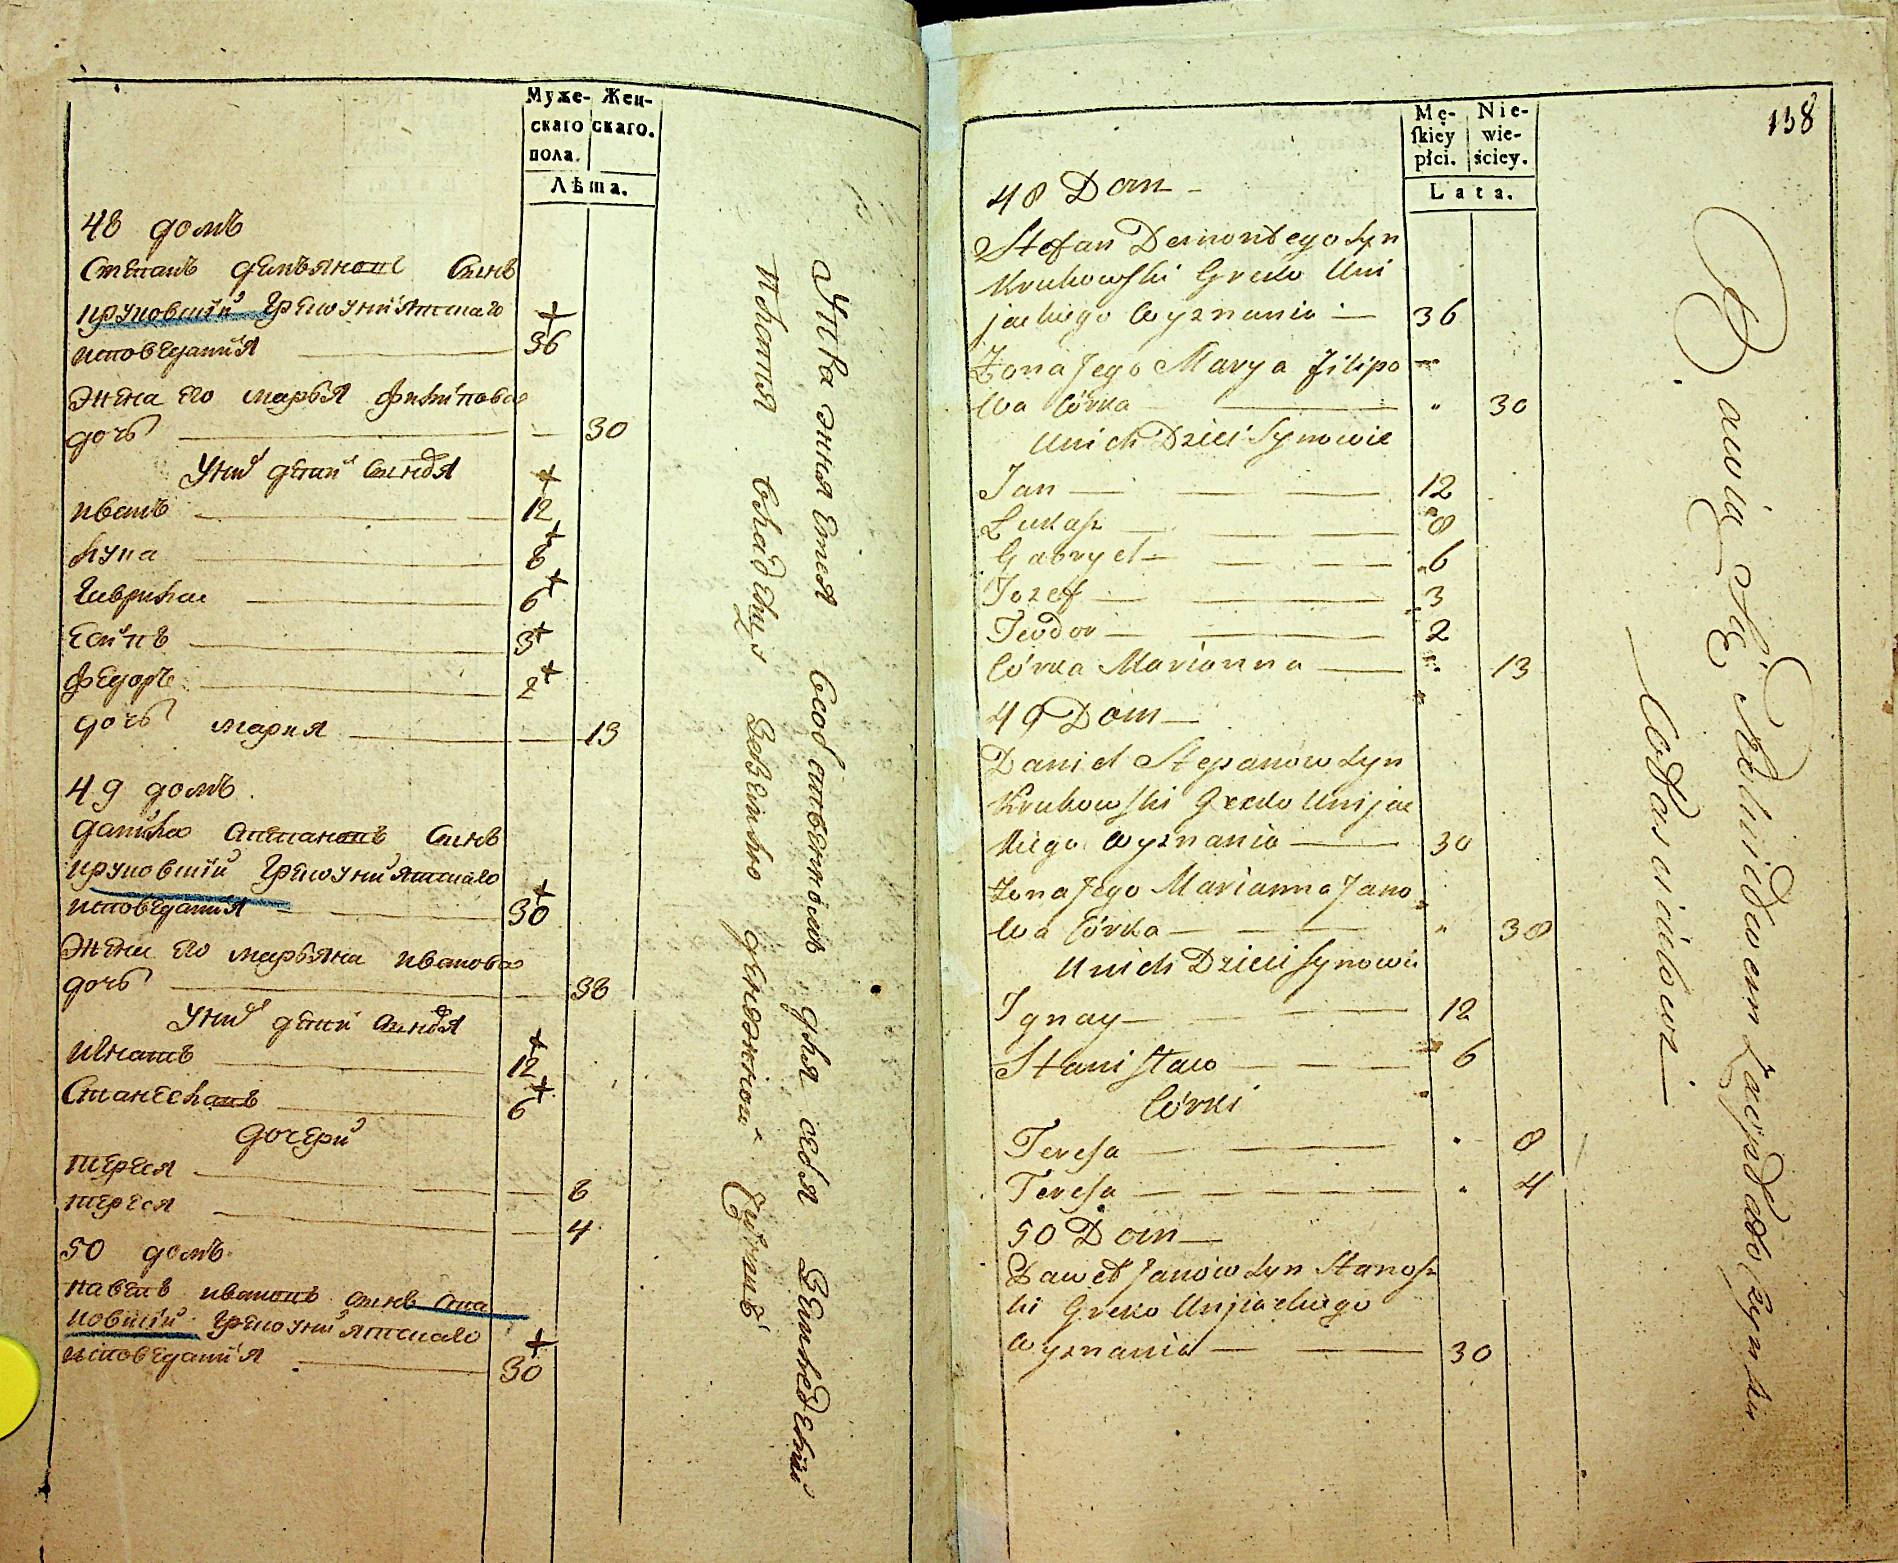 Муже- Жен-
скаго скаго.
пола.
Лѣта.
48 домъ
Степанъ демьяновъ сынъ
круковшій грекоуніятскаго
исповеданія 36
жена его марья филипова
дочь 30
у ниⷯ детии сыновя
иванъ 12
лука 8
гаврила 6
есипъ 3
федоръ 2
дочь мария 13
49 домъ
данила степановъ сынъ
круковшій грекоуніятскаго
исповеданія 30
жена его марьяна иванова
дочь 38
у ниⷯ детии сыновя
игнатъ 12
станеславъ 6
дочери
тереся 8
тереся 4
50 домъ
павелъ ивановъ сынъ ста
новшій грекоуніятскаго
исповеданія 30
для себя
138
Mę- Nie-
ſkiey wie-
płci. ściey.
Lata.
48 Dom
Stefan Demontego Syn
Krukowſki Greko Uni
jackiego Wyznania 36
Zona Jego Marya Filipo
wa Córka " 30
U nich Dzieci Synowie
Jan 12
Lukaſz 8
Gabryel 6
Jozef 3
Teodor 2
Córka Marianna 13
49 Dom
Daniel Stepanów Syn
Krukowſki Greko Unijac
kiego Wyznania 30
Zona Jego Marianna Jano
wa Córka " 38
U nich Dzieci Synowie
Ignacy 12
Staniſław 6
Córki
Tereſa 8
Tereſa 4
50 Dom
Paweł Janów Syn Stanoſz
ki Greko Unjiackiego
Wyznania 30
Bawią się